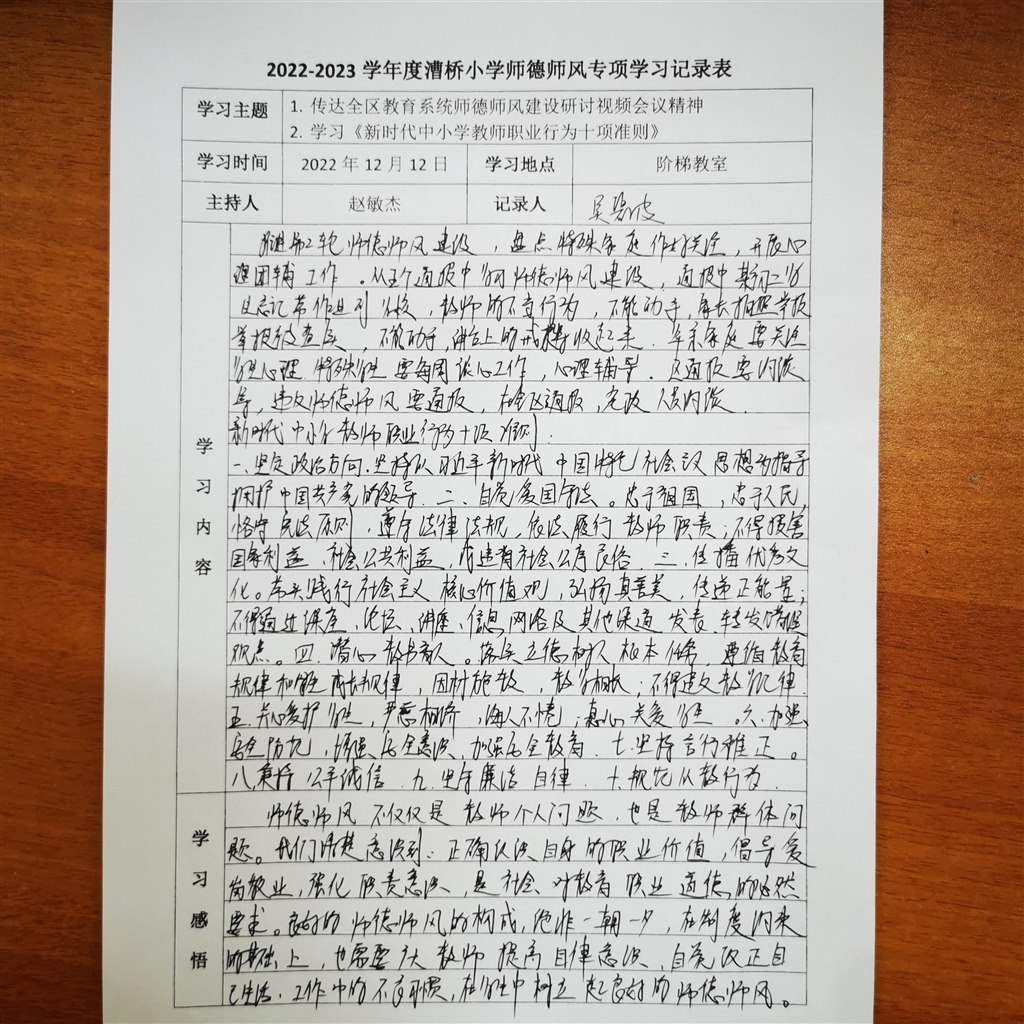 2022-2023 学年度漕桥小学师德师风专项学习记录表
学习主题
1. 传达全区教育系统师德师风建设研讨视频会议精神
2. 学习《新时代中小学教师职业行为十项准则》
学习时间 2022 年 12 月 12 日 学习地点 阶梯教室
主持人 赵敏杰 记录人
学习内容
师德师风建设，盘点特殊家庭作好关注，开展心
理团辅工作。从五个通报中 师德师风建设，通报中
，教师的不当行为，不能动手，家长拍照举报
举报 查实，不能动手，讲台上的戒 收起来. 单亲家庭要关注
学生心理 特殊学生要每周谈心工作，心理辅导. 区通报要约谈
，违反师德师风要通报， 通报，
新时代中小学教师职业行为十项准则.
一.坚定政治方向.坚持以习近平新时代中国特色社会主义思想为指导
拥护中国共产党的领导. 二、自觉爱国守法。忠于祖国，忠于人民，
恪守宪法原则，遵守法律法规，依法履行教师职责；不得损害
国家利益、社会公共利益，或违背社会公序良俗. 三.传播优秀文
化。带头践行社会主义核心价值观，弘扬真善美，传递正能量；
不得通过课堂、论坛、讲座、信息网络及其他渠道发表、转发错误
观点。四.潜心教书育人。落实立德树人根本任务，遵循教育
规律和学生成长规律，因材施教，教学相长；不得违反教学纪律.
五.关心爱护学生，严慈相济，诲人不倦，真心关爱学生。六.加强
安全防范，增强安全意识，加强安全教育. 七.坚持言行雅正。
八.秉持公平诚信. 九.坚守廉洁自律. 十.规范从教行为.
学习感悟
师德师风不仅仅是教师个人问题，也是教师群体问
题。我们清楚意识到：正确认识自身的职业价值，倡导爱
岗敬业，强化职责意识，是社会对教育职业道德的必然
要求。良好的师德师风的构成，绝非一朝一夕，在制度约束
的基础上，也需要广大教师提高自律意识，自觉改正自
己生活、工作中的不良习惯，在学生中树立起良好的师德师风。